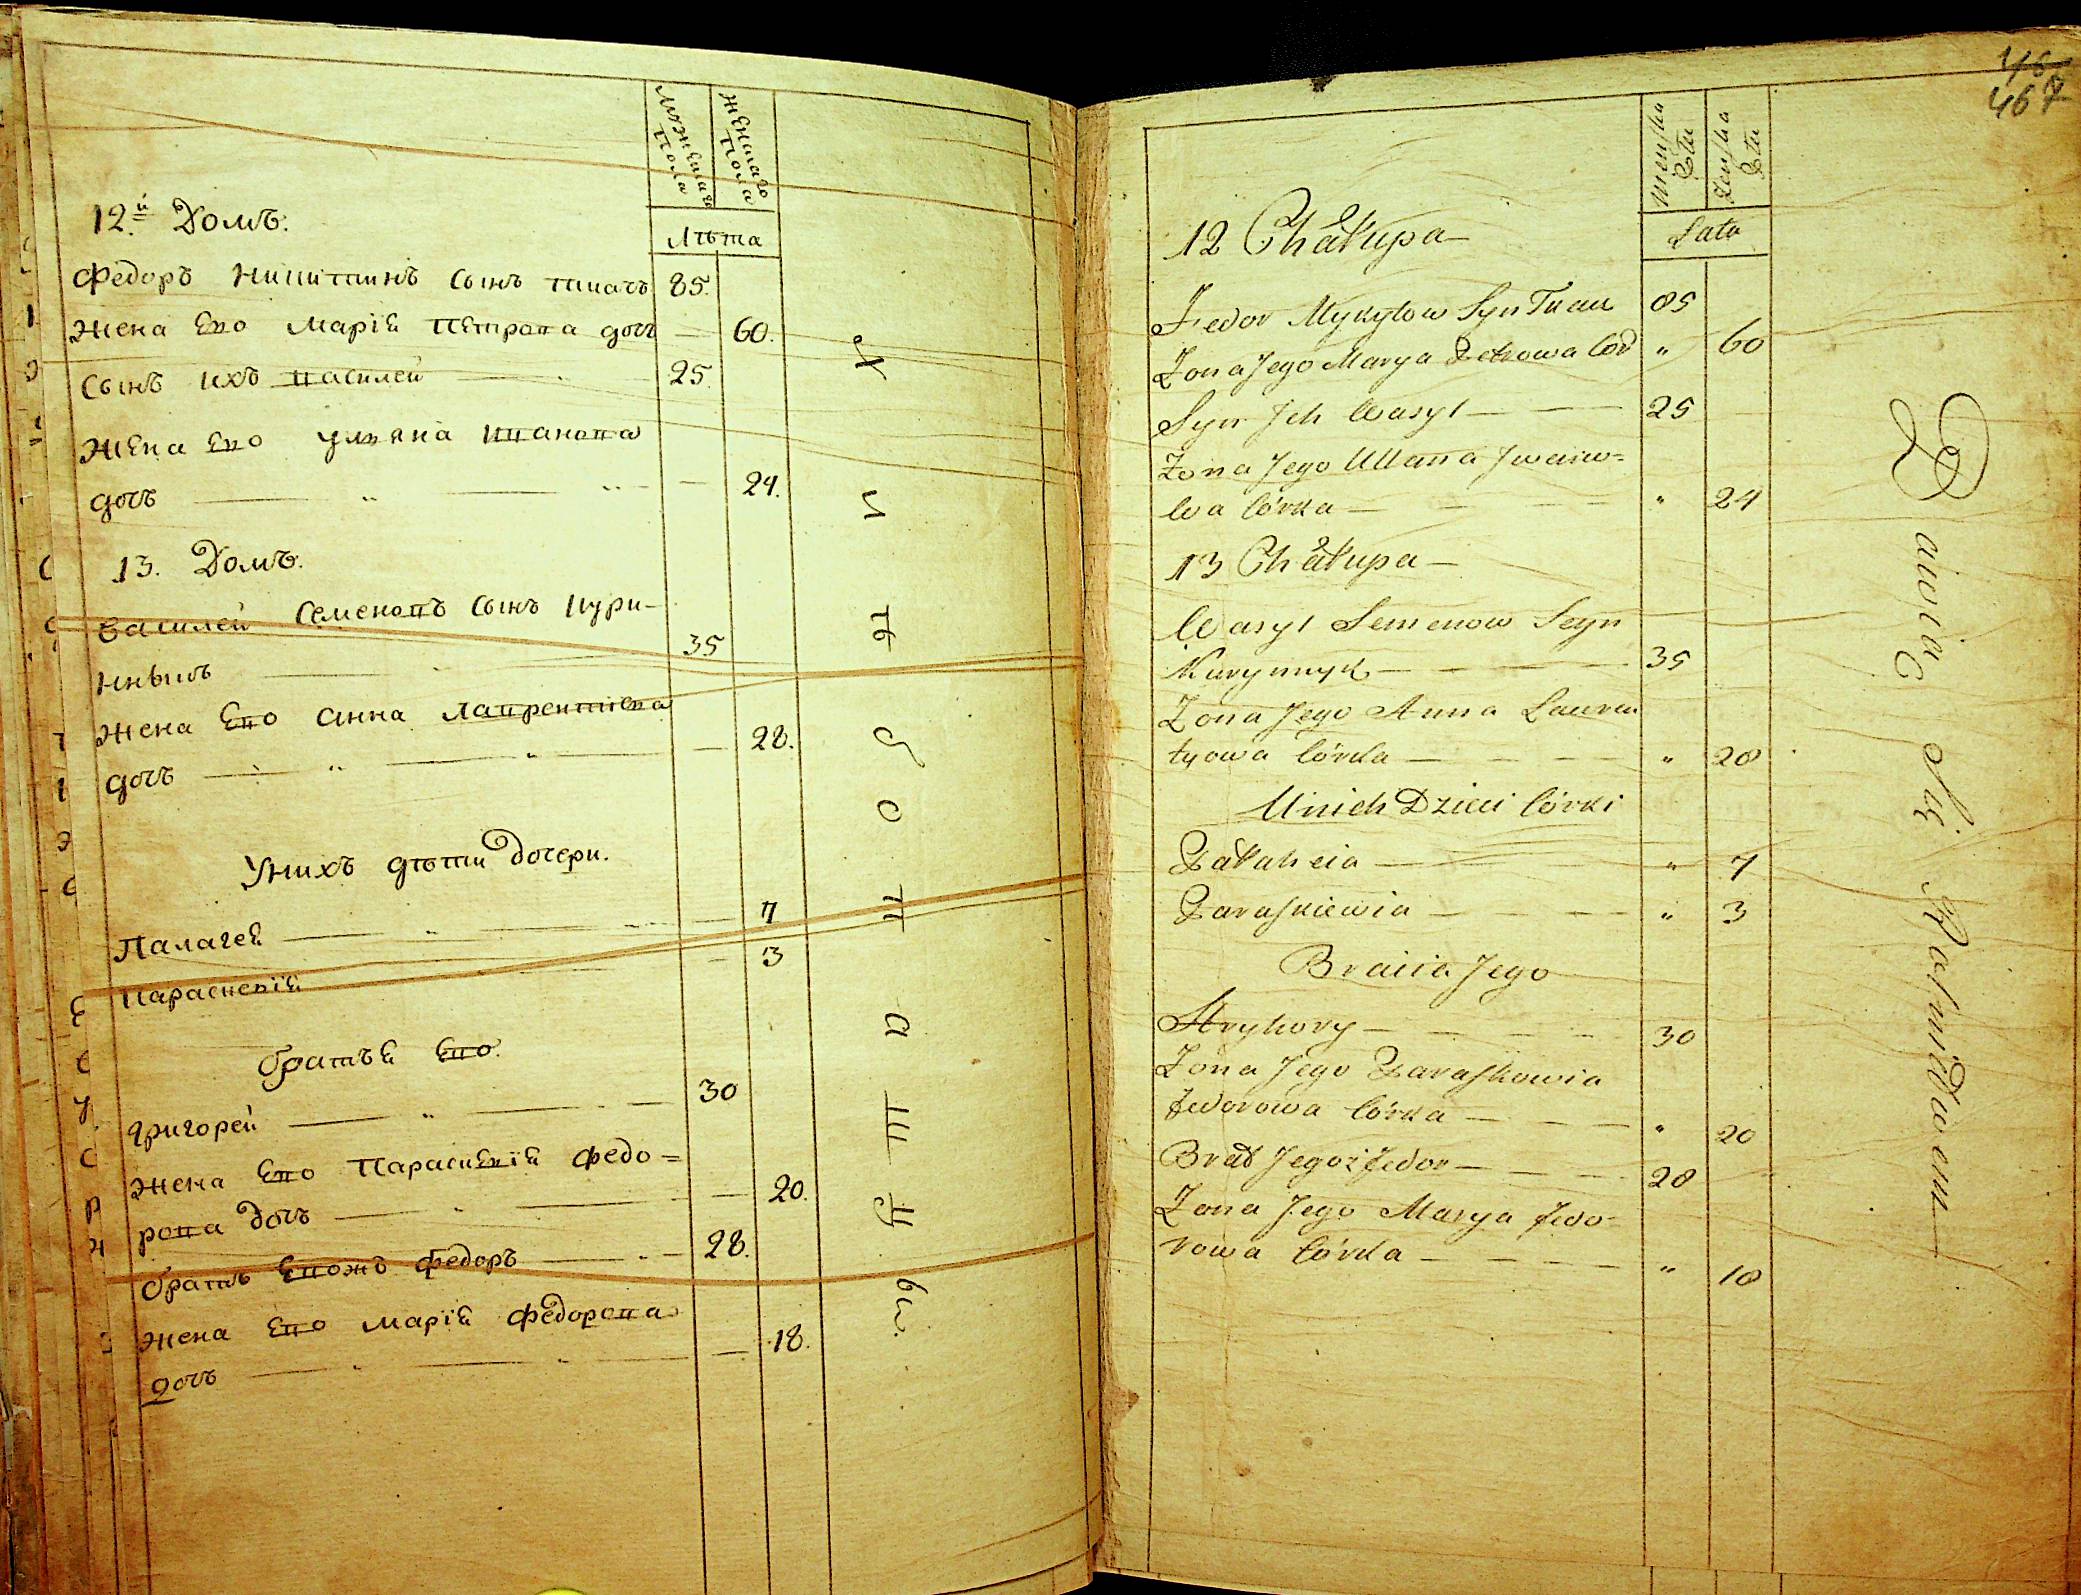 Мужескаго Пола
Женскаго Пола
Лѣта
12.й Домъ.
Федоръ Никитинъ сынъ ткачъ 85.
Жена Его Марія Петрова дочь — 60.
Сынъ ихъ Василей — 25.
Жена Его Ульяна Иванова
дочь — — 24.
13. Домъ.
Василей Семеновъ сынъ Кури-
нныкъ — 35
Жена Его Анна Лаврентіева
дочь — — 28.
У нихъ дѣти дочери.
Палагея — — 7
Параскевія — 3
Братья Его.
Григорей — 30
Жена Его Параскевія Федо=
рова дочь — — 20.
Братъ Егожъ Федоръ — 28.
Жена Его Марія Федорова
дочь — — 18.
Хлѣбопашцы.
467
Męska Płci
Żeńska Płci
Lata
12 Chałupa
Fedor Mykytow Syn Tkacz 85
Żona Jego Marya Petrowa Cór „ 60
Syn Jch Wasyl — 25
Żona Jego Ullana Jwano=
wa Córka — „ 24
13 Chałupa
Wasyl Semenow Seyn
Kurynnyk — 35
Żona Jego Anna Lauren
tyowa Córka — „ 28
U nich Dzieci Córki
Pałaheia — „ 7
Paraskiewia — „ 3
Bracia Jego
Hryhory — 30
Żona Jego Paraskowia
Fedorowa Córka — „ 20
Brat Jegoż Fedor — 28
Żona Jego Marya Fedo-
rowa Córka — „ 18
Bawią się Rolnictwem